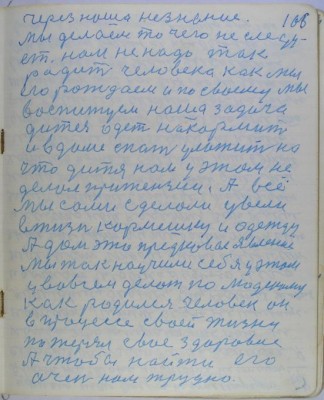 через наша незнание. 106
Мы делаем то чего не следу-
ет. нам не надо так
родит человека как мы
его рождаем и по своему мы
воспитуем наша задача
дитея одет накормит
и в доме спат уложит на
что дитя нам у этом не
делая притензии. А всё
мы сами сделали увели
в жизн кормешку и одежду
А дом это предковае явление
Мы так научили себя у этом
у во всем делат по модному
Как родился человек он
в процессе своей жизни
потерял свое здоровие
А чтобы найти его
очен нам трудно.